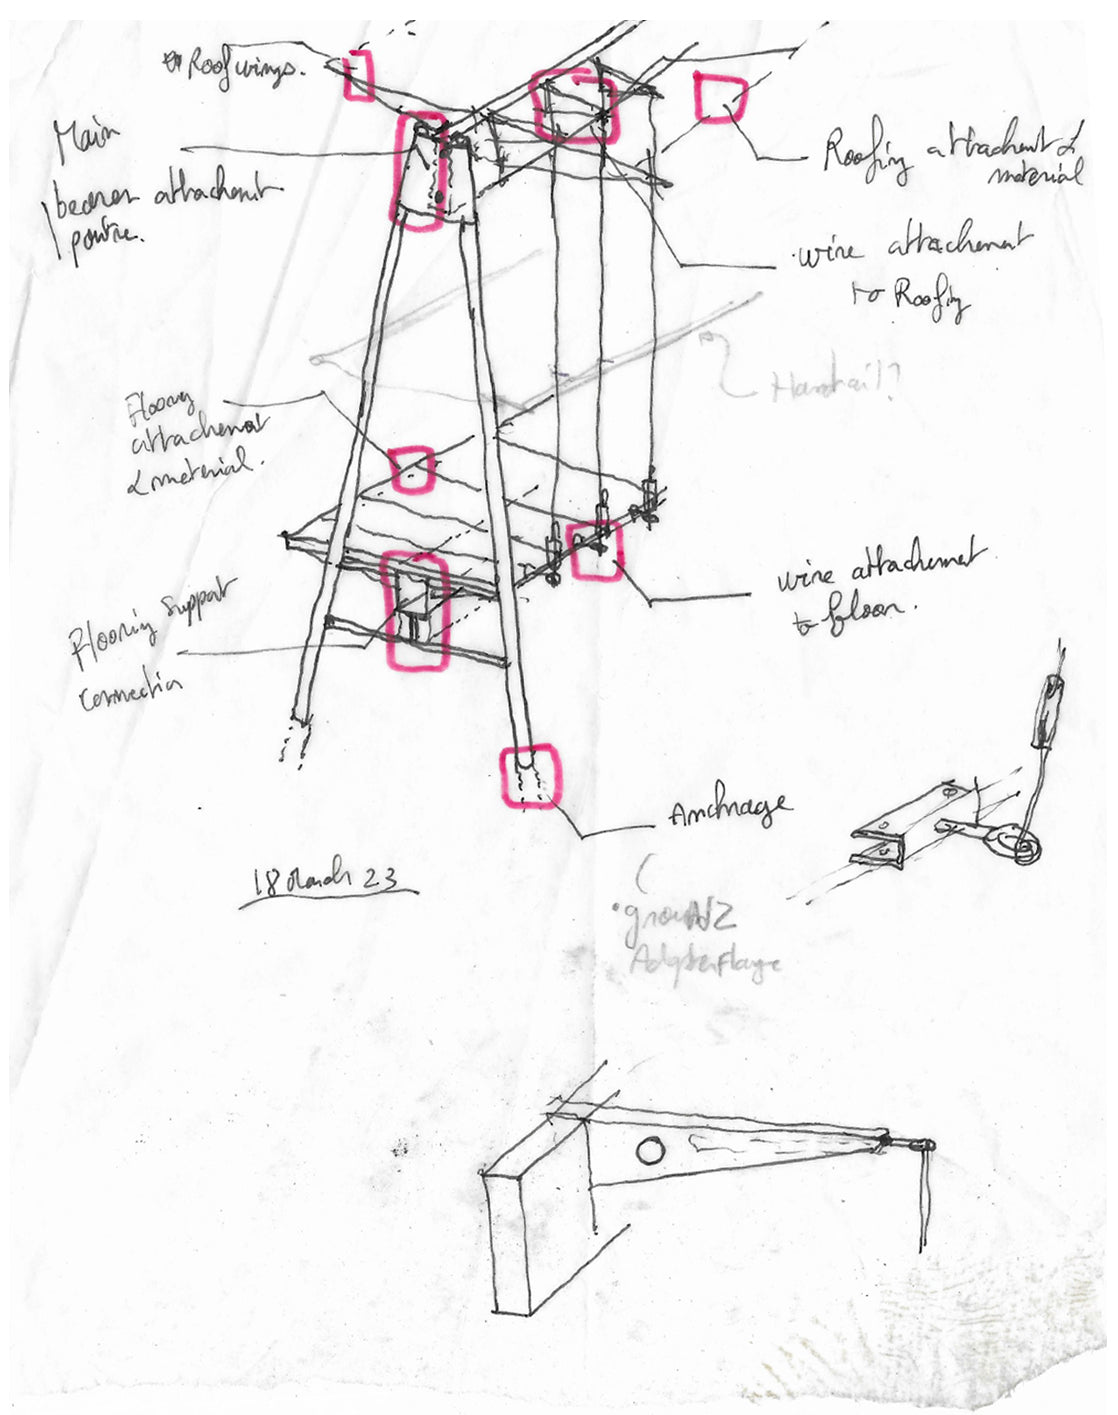 Roof wings.
Main
bearer attachement
poutre.
Roofing attachement &
material
wire attachement
to Roofing
Handrail?
Flooring
attachement
& material.
wire attachement
to floor.
Flooring support
connection
Anchrage
18 March 23
•ground